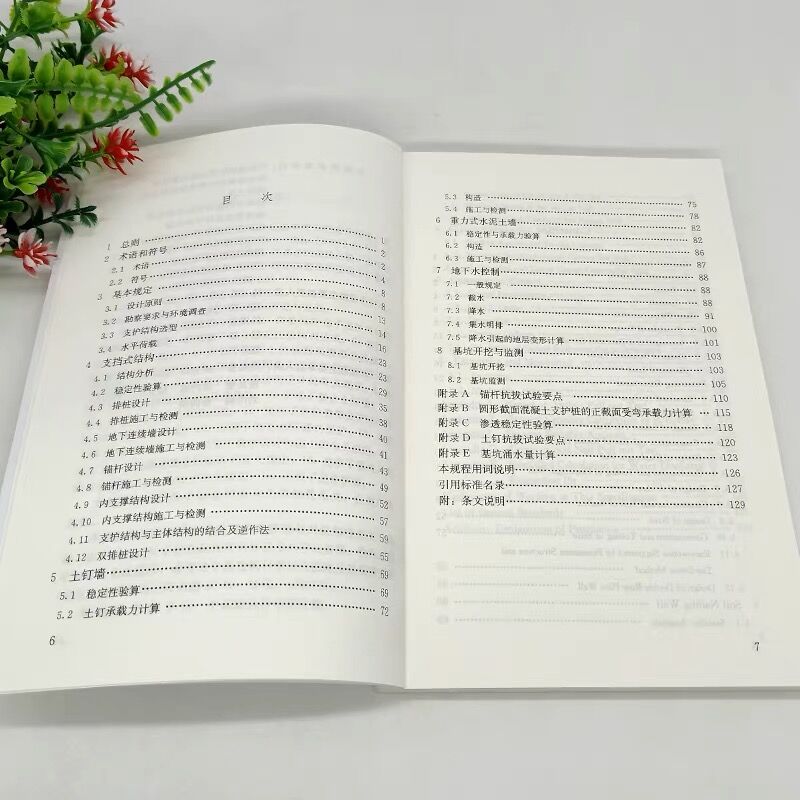 目 次
1 总则 1
2 术语和符号 2
2.1 术语 2
2.2 符号 4
3 基本规定 8
3.1 设计原则 8
3.2 勘察要求与环境调查 13
3.3 支护结构选型 14
3.4 水平荷载 16
4 支挡式结构 23
4.1 结构分析 23
4.2 稳定性验算 29
4.3 排桩设计 35
4.4 排桩施工与检测 38
4.5 地下连续墙设计 40
4.6 地下连续墙施工与检测 41
4.7 锚杆设计 43
4.8 锚杆施工与检测 49
4.9 内支撑结构设计 52
4.10 内支撑结构施工与检测 57
4.11 支护结构与主体结构的结合及逆作法 59
4.12 双排桩设计 65
5 土钉墙 69
5.1 稳定性验算 69
5.2 土钉承载力计算 72
6
5.3 构造 75
5.4 施工与检测 78
6 重力式水泥土墙 82
6.1 稳定性与承载力验算 82
6.2 构造 86
6.3 施工与检测 87
7 地下水控制 88
7.1 一般规定 88
7.2 截水 88
7.3 降水 91
7.4 集水明排 100
7.5 降水引起的地层变形计算 101
8 基坑开挖与监测 103
8.1 基坑开挖 103
8.2 基坑监测 105
附录A 锚杆抗拔试验要点 110
附录B 圆形截面混凝土支护桩的正截面受弯承载力计算 115
附录C 渗透稳定性验算 118
附录D 土钉抗拔试验要点 120
附录E 基坑涌水量计算 123
本规程用词说明 126
引用标准名录 127
附：条文说明 129
7